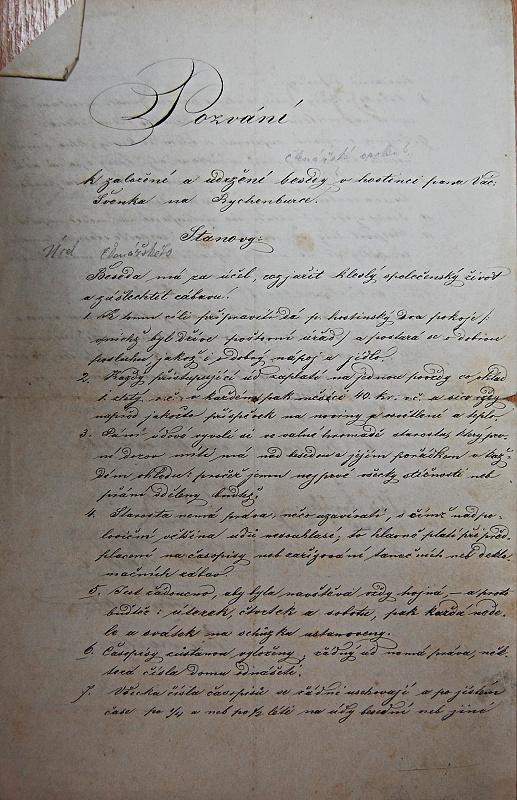 Pozvání
čtenářského spolku
k založení a udržení besedy v hostinci pana Vác:
Švenka na Rychenburce.
Stanovy:
Účel čtenářského
Beseda má za účel, rozjařit kleslý společenský život
a zušlechtit zábavu!
1. K tomu cíli připravití dá p. hostinský dva pokoje /:
v nichž byl dříve poštovní úřad:/ a postará se o dobrou
posluhu jakož i o dobrý nápoj a jídlo.
2. Každý přistupující úd zaplatí na jednou porčdy co vklad
1 zlatý r.č. v každém pak měsíci 40 kr. r.č. a sice vždy
napřed jakožto příspěvek na noviny a světlo a teplo.
3. Páni údové vyvolí si ve valné hromadě starostu, který pro
ni dozor míti má nad besedou a jejím pořádkem v kaž-
dém ohledu: pročež jemu nejprvé všecky stížnosti neb
přání sděleny buďtež.
4. Starosta nemá práva, něco uzavírati, s čímž nad po-
loviční většina údů nesouhlasí; to hlavně platí při před-
placení na časopisy neb zařizování tanečních neb dekla-
mačních zábav.
5. Jest žádoucno, aby byla návštěva vždy hojná, – a proto
budtež: úterek, čtvrtek a sobota, pak každá nedě-
le a svátek na schůzku ustanoveny.
6. Časopisy zůstanou vyloženy; žádný úd nemá práva, někt-
terá čísla domu odnášeti.
7. Všecka čísla časopisů se řádně uschovají a po jistém
čase po 1/4 a neb po 1/2 létě na údy besední neb jiné